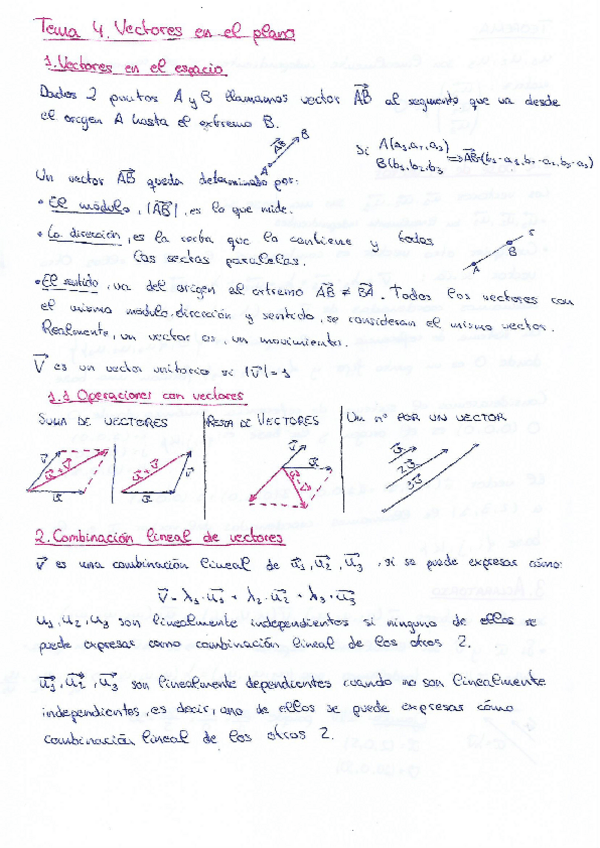 Tema 4. Vectores en el plano
1. Vectores en el espacio
Dados 2 puntos A y B llamamos vector AB⃗ al segmento que va desde
el origen A hasta el extremo B.
A AB⃗ B
Si A(a₁,a₂,a₃)
B(b₁,b₂,b₃ ⟹ AB⃗(b₁-a₁,b₂-a₂,b₃-a₃)
Un vector AB⃗ queda determinado por:
• El módulo, |AB⃗|, es lo que mide.
• La dirección, es la recta que la contiene y todas
las rectas paralelas.
A B r
• El sentido, va del origen al extremo AB⃗ ≠ BA⃗. Todos los vectores con
el mismo módulo, dirección y sentido, se consideran el mismo vector.
Realmente, un vector es, un movimiento.
V⃗ es un vector unitario si |v⃗| = 1
1.1 Operaciones con vectores
SUMA DE VECTORES
RESTA DE VECTORES
UN nº POR UN VECTOR
v⃗ u⃗+v⃗ u⃗
u⃗+v⃗ v⃗ u⃗
v⃗ u⃗
v⃗ 2v⃗ 3v⃗
2. Combinación lineal de vectores
v⃗ es una combinación lineal de u₁⃗, u₂⃗, u₃⃗, si se puede expresar cómo:
v⃗ = λ₁·u₁⃗ + λ₂·u₂⃗ + λ₃·u₃⃗
u₁, u₂, u₃ son linealmente independientes si ninguno de ellos se
puede expresar como combinación lineal de los otros 2.
u₁⃗, u₂⃗, u₃⃗ son linealmente dependientes cuando no son linealmente
independientes, es decir, uno de ellos se puede expresar cómo
combinación lineal de los otros 2.